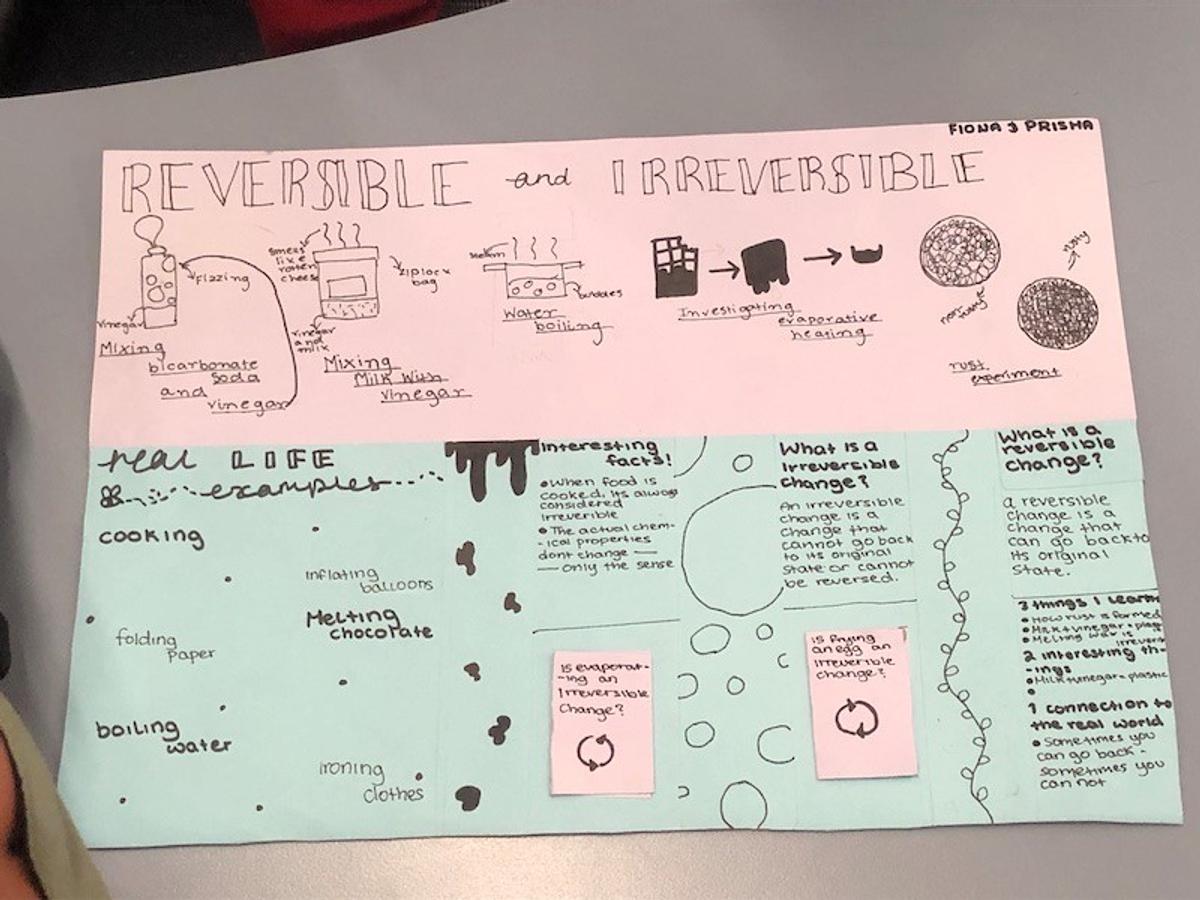 FIONA & PRISHA
REVERSIBLE and IRREVERSIBLE
Fizzing
vinegar
Mixing
bicarbonate
soda
and
vinegar
smells
like
rotten
cheese
ziplock
bag
vinegar
and
milk
Mixing
Milk with
vinegar
steam
bubbles
Water
boiling
Investigating
evaporative
heating
rusty
rust
experiment
real LIFE
examples
cooking
inflating
balloons
folding
paper
Melting
chocolate
boiling
water
ironing
clothes
Interesting
facts!
• When food is
cooked, its always
considered
irreverible
• The actual chem-
-ical properties
dont change —
— only the sense
Is evaporat-
-ing an
Irreversible
Change?
What is a
Irreversible
change?
An irreversible
change is a
change that
cannot go back
to its original
state or cannot
be reversed.
is frying
an egg an
irreverible
change?
What is a
reversible
change?
a reversible
change is a
change that
can go back to
its original
state.
3 things I learn
• How rust is formed
• Milk + vinegar = plas
• Melting wax is
irrevers
2 interesting th-
-ings
• Milk + vinegar = plastic
•
1 connection to
the real world
• Sometimes you
can go back -
sometimes you
can not